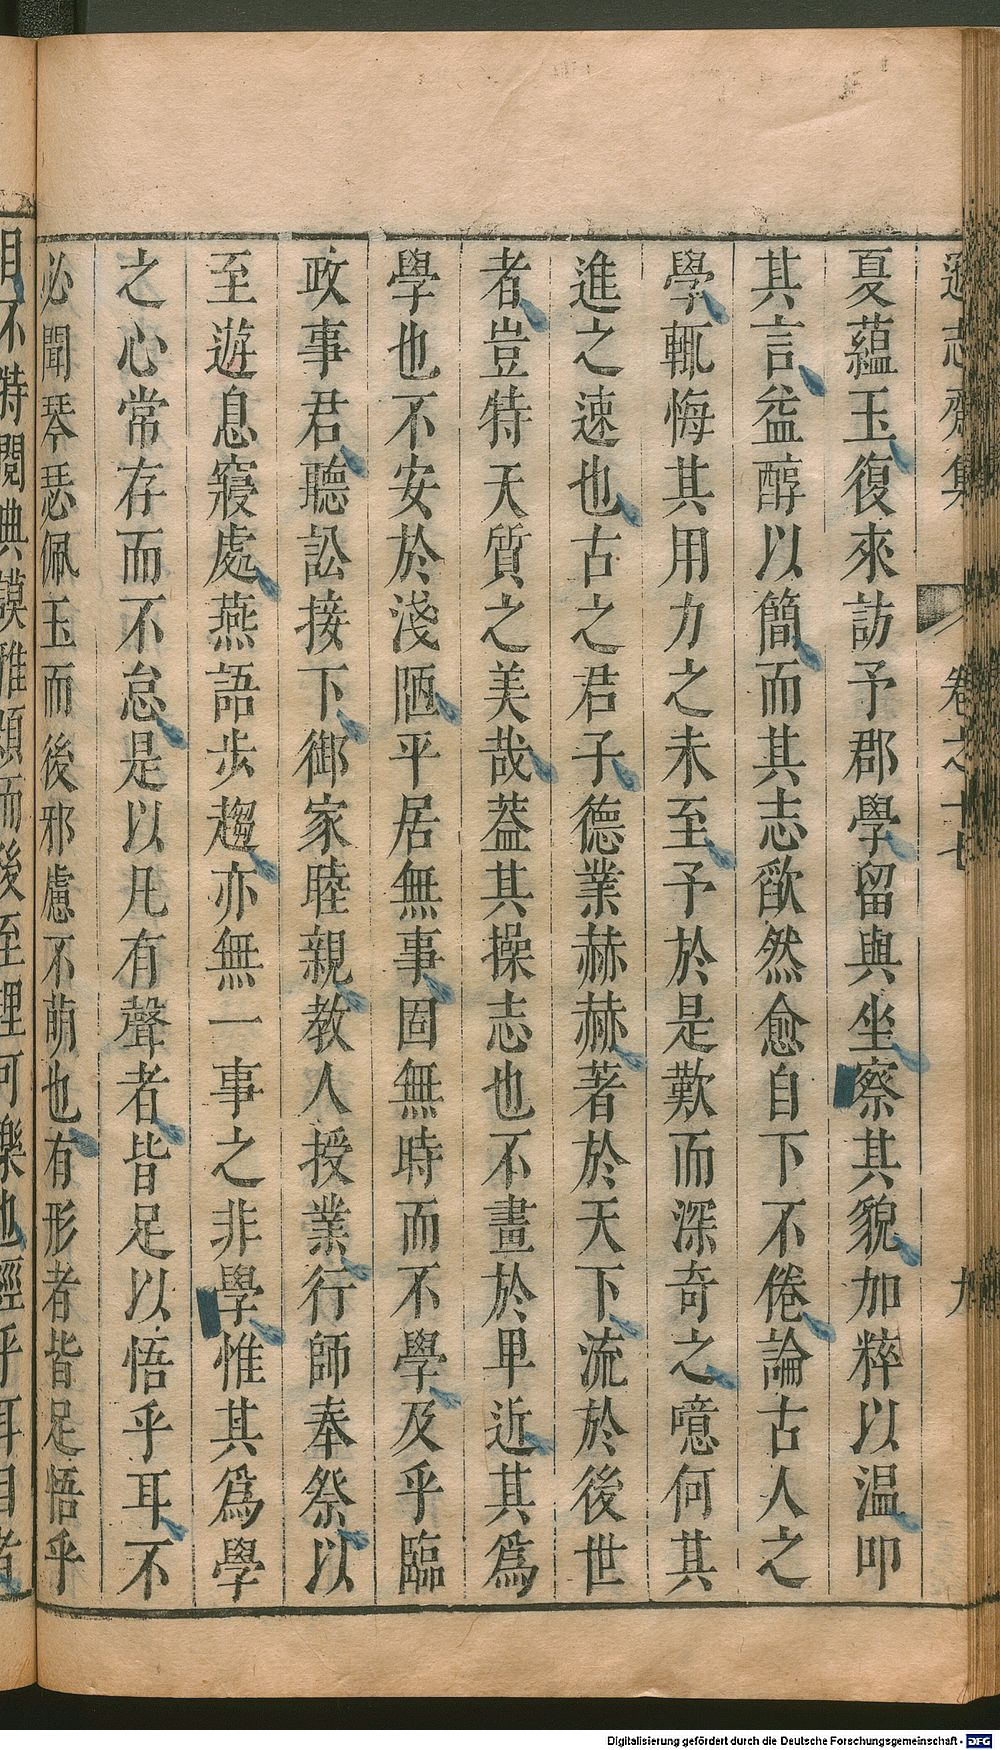 遜志齋集 卷之十七 九
夏蘊玉復來訪予郡學留與坐察其貌加粹以温叩
其言益醇以簡而其志歉然愈自下不倦論古人之
學輒悔其用力之未至予於是歎而深奇之噫何其
進之速也古之君子德業赫赫著於天下流於後世
者豈特天質之美哉葢其操志也不畫於卑近其爲
學也不安於淺陋平居無事固無時而不學及乎臨
政事君聽訟接下御家睦親教人授業行師奉祭以
至遊息寢處燕語步趨亦無一事之非學惟其爲學
之心常存而不怠是以凡有聲者皆足以悟乎耳不
必聞琴瑟佩玉而後邪慮不萌也有形者皆足悟乎
目不特閱典謨雅頌而後至理可樂也經乎耳目者
Digitalisierung gefördert durch die Deutsche Forschungsgemeinschaft - DFG